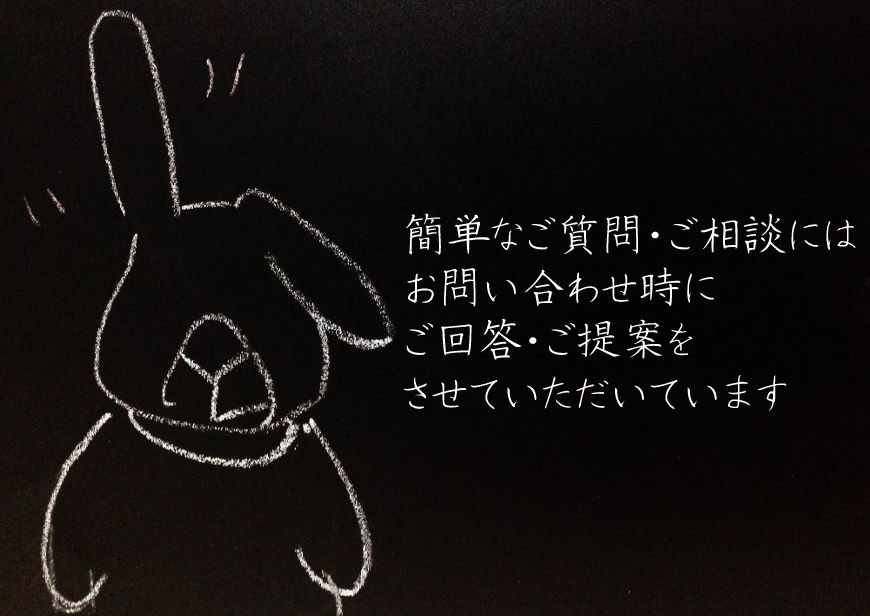 簡単なご質問・ご相談には
お問い合わせ時に
ご回答・ご提案を
させていただいています